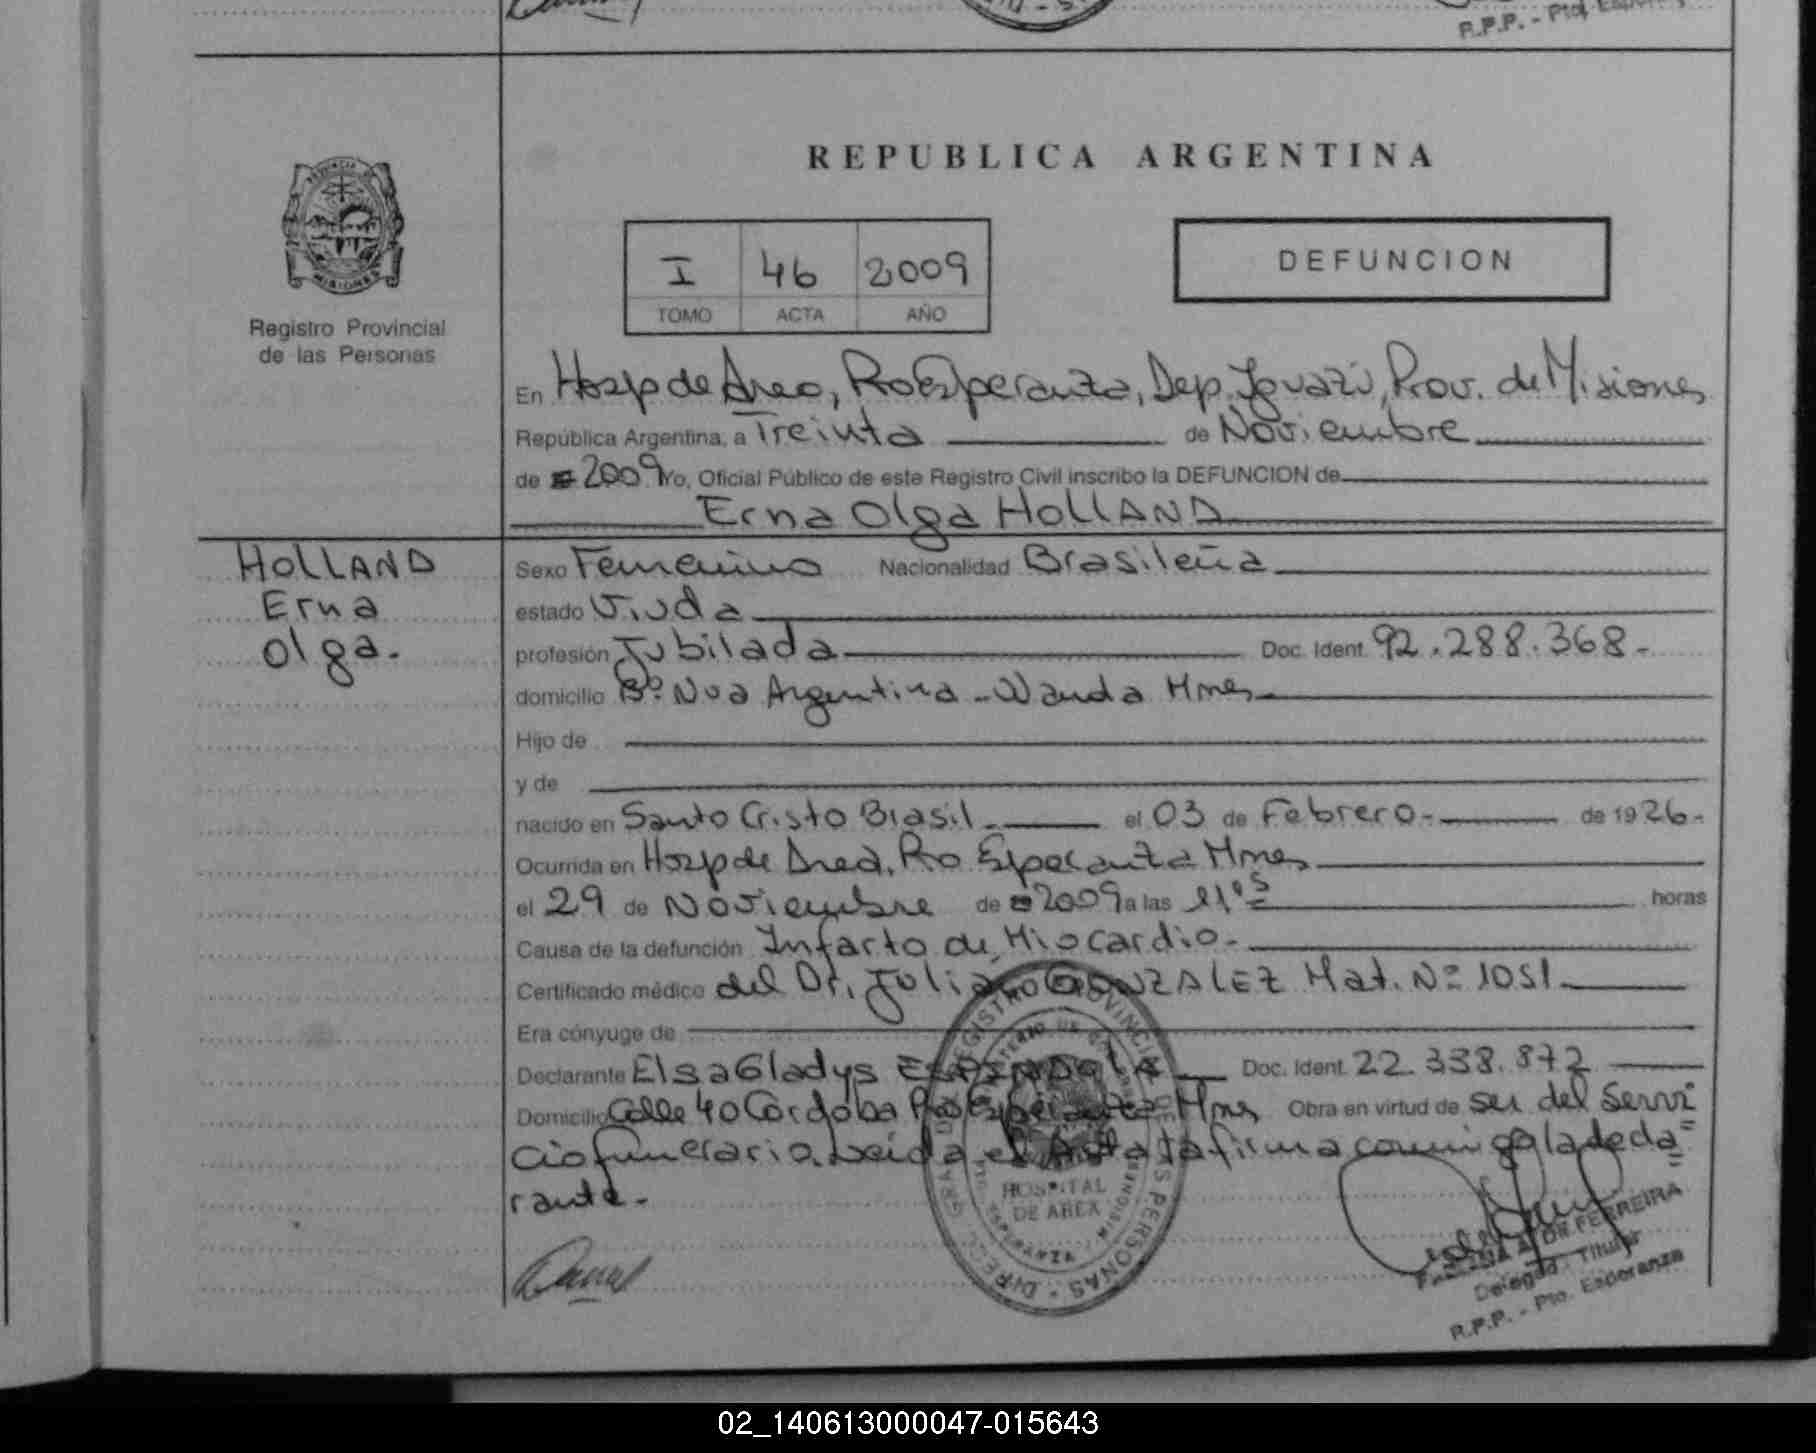 R.P.P. - Pto. Esperanza
REPUBLICA ARGENTINA
I 46 2009
TOMO ACTA AÑO
DEFUNCION
PROVINCIA DE
MISIONES
Registro Provincial
de las Personas
En Hosp de Area, Pto Esperanza, Dep. Iguazú, Prov. de Misiones
República Argentina, a Treinta de Noviembre
de 2009 Yo, Oficial Público de este Registro Civil inscribo la DEFUNCION de
Erna Olga HOLLAND
HOLLAND
Erna
Olga.
Sexo Femenino Nacionalidad Brasileña
estado Viuda
profesión Jubilada Doc. Ident. 92.288.368-
domicilio Bº Nva Argentina - Wanda Mnes
Hijo de
y de
nacido en Santo Cristo Brasil - el 03 de Febrero - de 1926-
Ocurrida en Hosp de Area, Pto Esperanza Mnes
el 29 de Noviembre de 2009 a las horas
Causa de la defunción Infarto de Miocardio-
Certificado médico del Dr. Julian GONZALEZ Mat. Nº 1051
Era cónyuge de
Declarante Elsa Gladys ESPINDOLA Doc. Ident. 22.338.872
Domicilio Calle 40 Cordoba Pto Esperanza Mnes Obra en virtud de ser del Servi=
cio funerario. Leida el Acta la firma conmigo la decla=
rante-
REGISTRO PROVINCIAL DE LAS PERSONAS
HOSPITAL
DE AREA
A. DE FERREIRA
Delegada Titular
R.P.P. - Pto. Esperanza
02_140613000047-015643